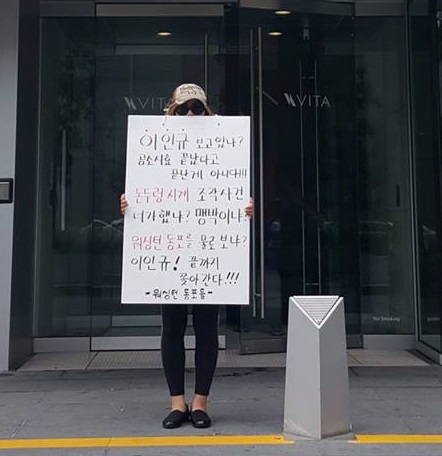 VITA
VITA
이인규 보고있냐?
공소시효 끝났다고
끝난게 아니다!!!
논두렁 시계 조작사건
너가했냐? 맹박이냐?
워싱턴 동포를 물로 보냐?
이인규! 끝까지
쫓아간다!!!
- 워싱턴 동포들 -